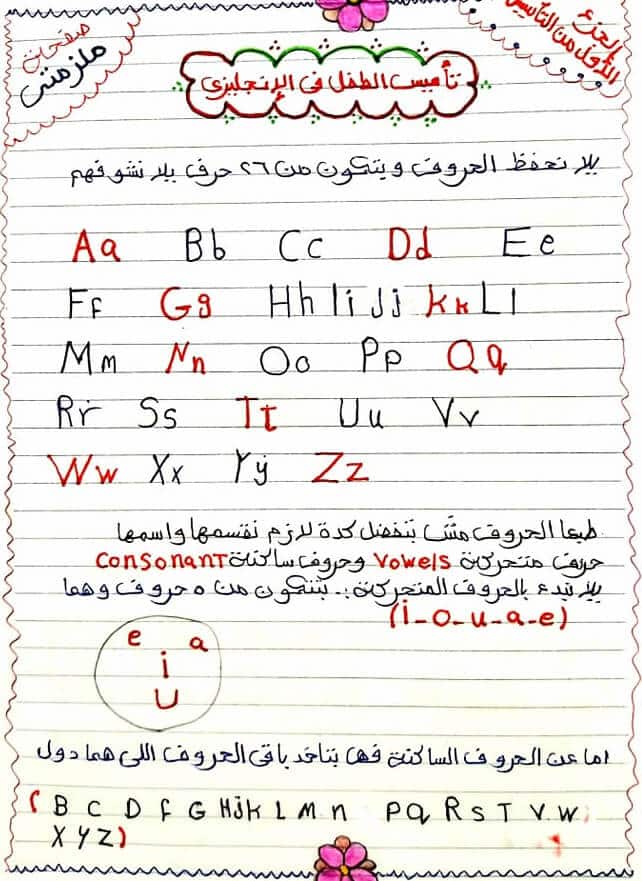 الجزء
الأول من التأسيس
صفحات
ملزمتى
تأسيس الطفل فى الإنجليزى
يلا نحفظ الحروف ويتكون من ٢٦ حرف يلا نشوفهم
Aa Bb Cc Dd Ee
Ff Gg Hh Ii Jj kk Ll
Mm Nn Oo Pp Qq
Rr Ss Tt Uu Vv
Ww Xx Yy Zz
طبعا الحروف مش بتفضل كدة لازم نقسمها واسمها
حروف متحركة Vowels وحروف ساكنة Consonant
يلا نبدء بالحروف المتحركة :- بتتكون من ٥ حروف وهما
(i-o-u-a-e)
e a
i
U
اما عن الحروف الساكنة فهى بتاخد باقى الحروف اللى هما دول
( B C D f G H j k L m n p q R s T v. w
X Y Z)